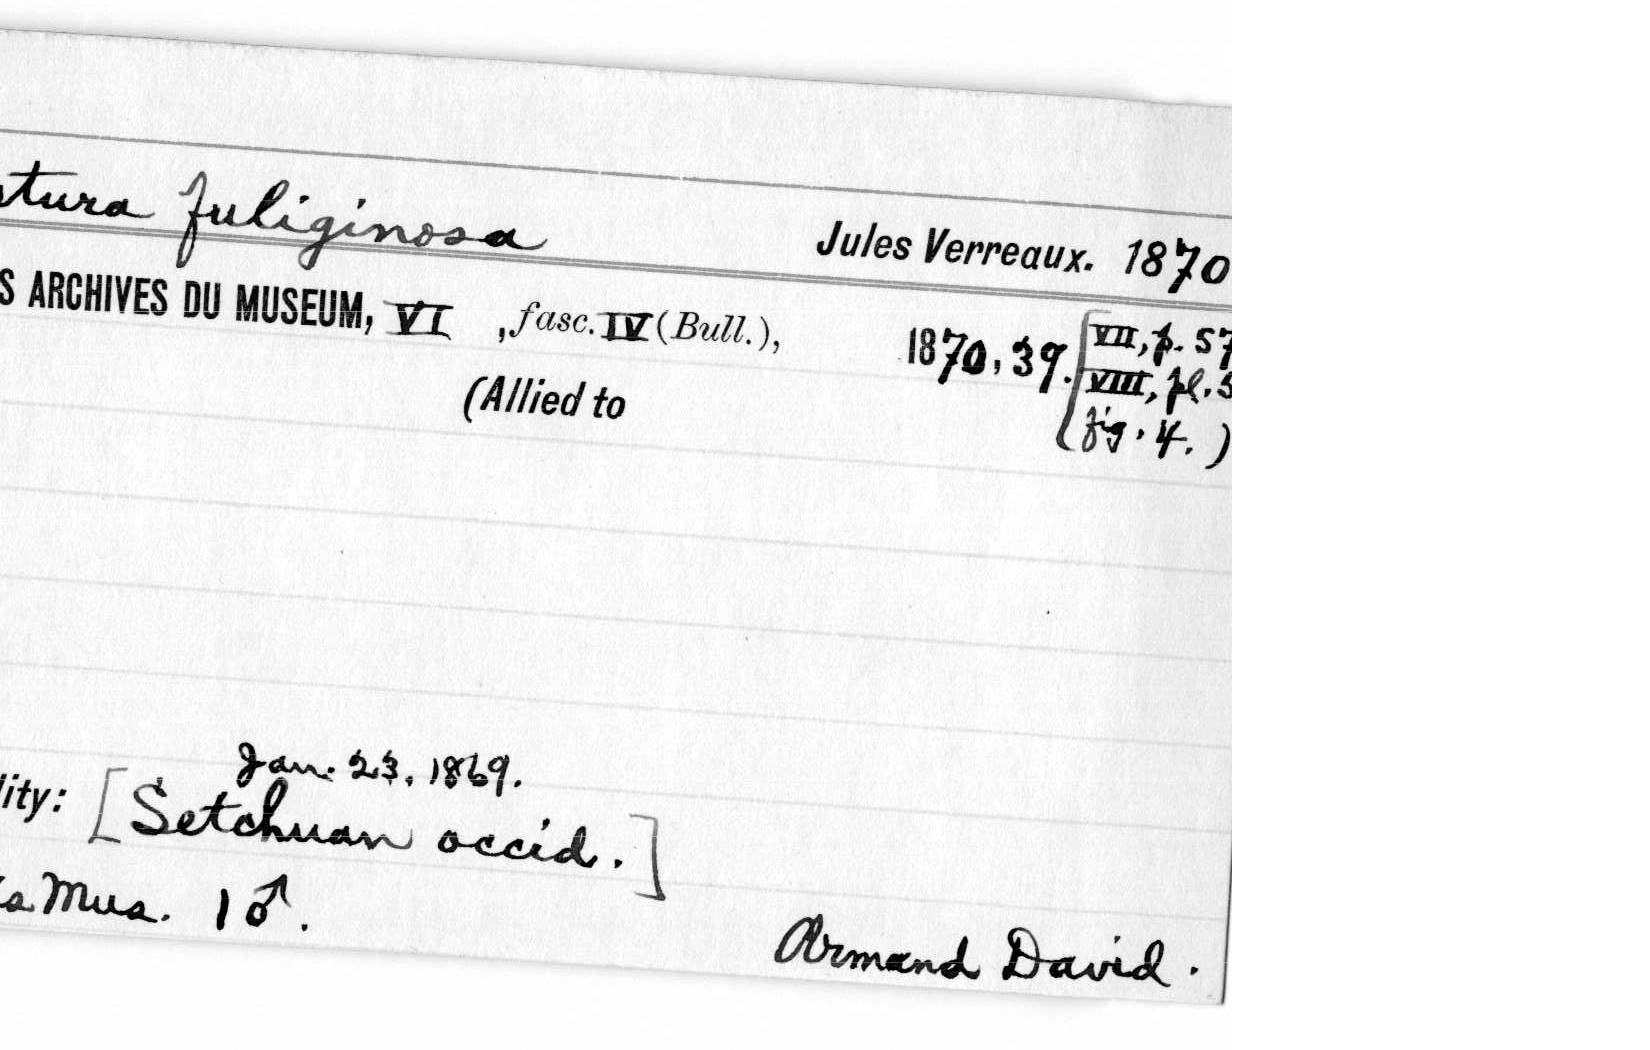 tura fuliginosa Jules Verreaux. 1870
S ARCHIVES DU MUSEUM, VI , fasc. IV (Bull.), 1870, 39. [VII, p. 57
(Allied to VIII, pl. 3
fig. 4.)
Jan. 23, 1869.
lity: [Setchuan occid.]
Mus. 1 ♂.
Armand David.